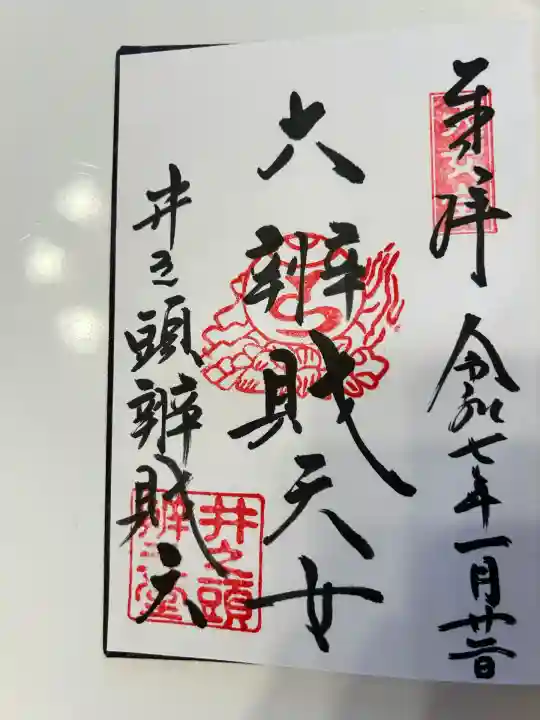 奉拝
令和七年一月廿一日
大辨財天女
井之頭辨財天
井之頭
辨財天堂